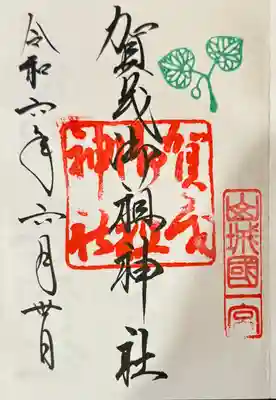 山城國一宮
賀茂御祖神社
賀茂御祖神社
令和六年六月廿日